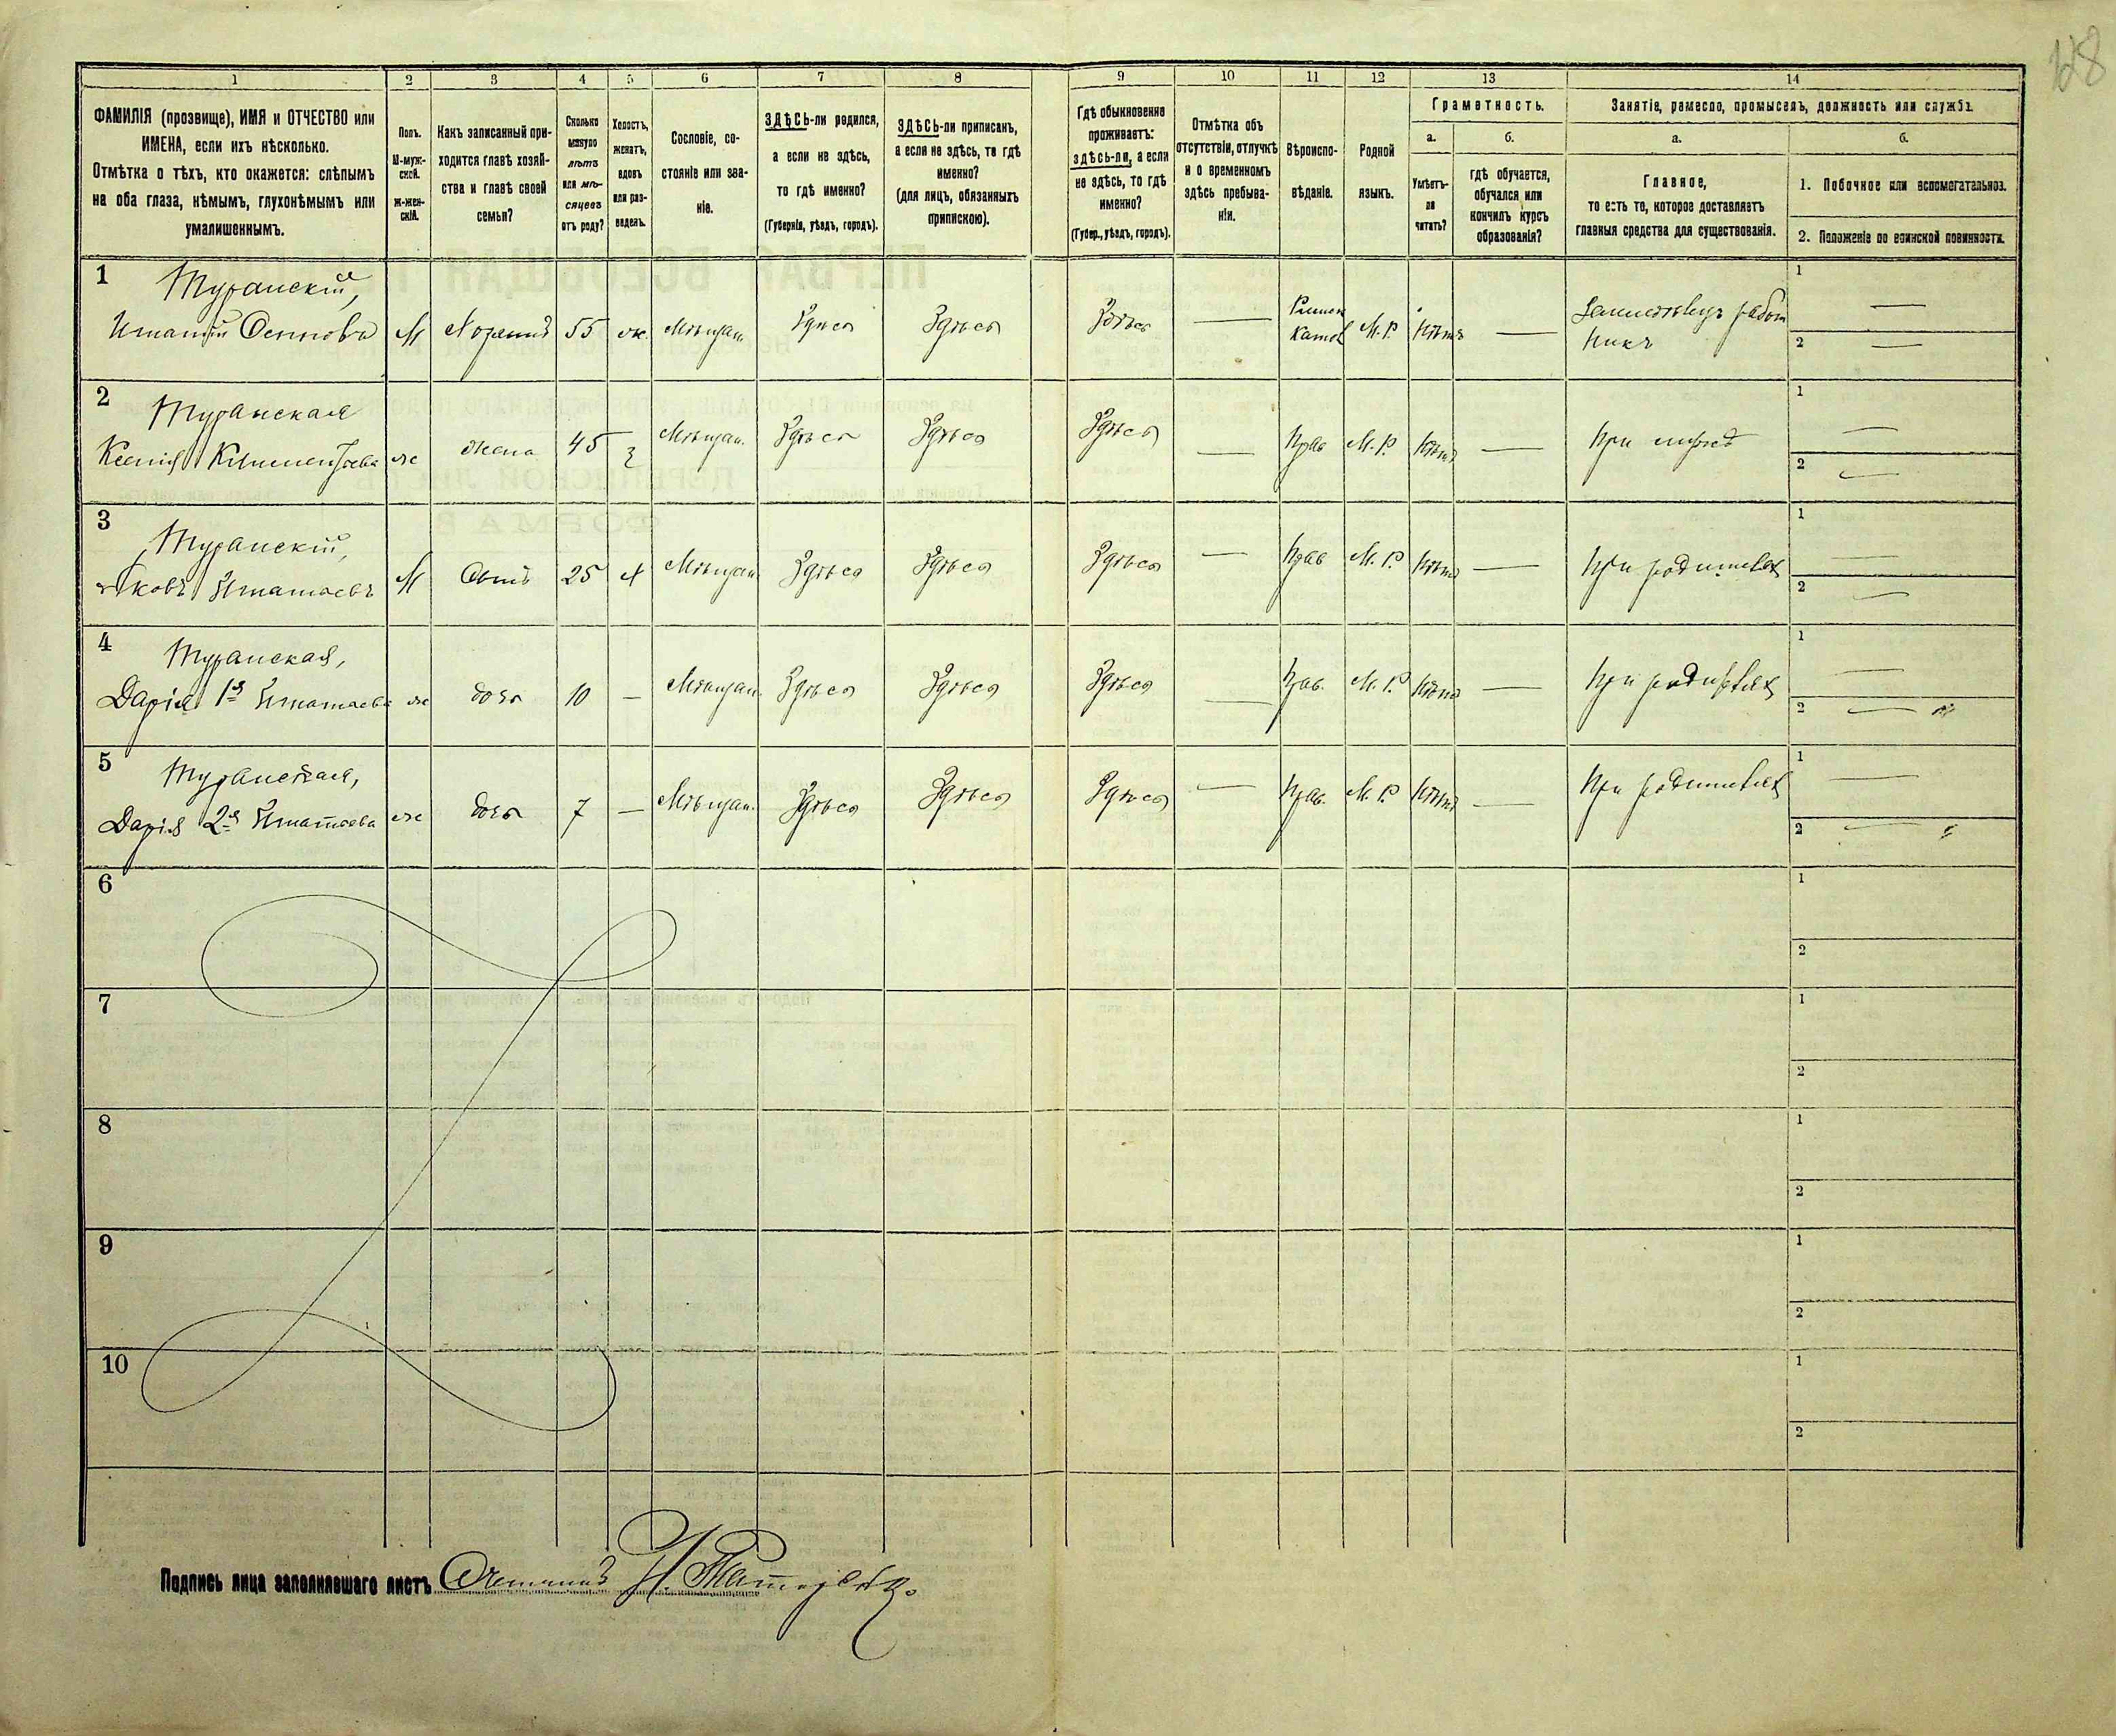 128
1
2
3
4
5
6
7
8
9
10
11
12
13
14
ФАМИЛІЯ (прозвище), ИМЯ и ОТЧЕСТВО или
ИМЕНА, если ихъ нѣсколько.
Отмѣтка о тѣхъ, кто окажется: слѣпымъ
на оба глаза, нѣмымъ, глухонѣмымъ или
умалишеннымъ.
Полъ.
М-муж-
ской.
Ж-жен-
скій.
Какъ записанный при-
ходится главѣ хозяй-
ства и главѣ своей
семьи?
Сколько
минуло
лѣтъ
или мѣ-
сяцевъ
отъ роду?
Холостъ,
женатъ,
вдовъ
или раз-
веденъ.
Сословіе, со-
стояніе или зва-
ніе.
ЗДѢСЬ-ли родился,
а если не здѣсь,
то гдѣ именно?
(Губернія, уѣздъ, городъ).
ЗДѢСЬ-ли приписанъ,
а если не здѣсь, то гдѣ
именно?
(для лицъ, обязанныхъ
припискою).
Гдѣ обыкновенно
проживаетъ:
здѣсь-ли, а если
не здѣсь, то гдѣ
именно?
(Губер., уѣздъ, городъ).
Отмѣтка объ
отсутствіи, отлучкѣ
и о временномъ
здѣсь пребыва-
ніи.
Вѣроиспо-
вѣданіе.
Родной
языкъ.
Грамотность.
а.
Умѣетъ-
ли
читать?
б.
гдѣ обучается,
обучался или
кончилъ курсъ
образованія?
Занятіе, ремесло, промыселъ, должность или служба.
а.
Главное,
то есть то, которое доставляетъ
главныя средства для существованія.
б.
1. Побочное или вспомогательное.
2. Положеніе по воинской повинности.
1 Туранскій,
Игнатій Осипова М Хозяинъ 55 ж. Мѣщан. Здѣсь Здѣсь Здѣсь — Римск Катол М. Р. Нѣтъ — Земледѣлецъ работ
никъ
1 —
2 —
2 Туранская
Ксенія Климентьева ж жена 45 з Мѣщан. Здѣсь Здѣсь Здѣсь — Прав М. Р. Нѣтъ — При мужѣ
1 —
2 —
3 Туранскій,
Яковъ Игнатьевъ М Сынъ 25 х Мѣщан. Здѣсь Здѣсь Здѣсь — Прав М. Р. Нѣтъ — При родителях
1 —
2 —
4 Туранская,
Дарія 1я Игнатьева ж дочь 10 — Мѣщан. Здѣсь Здѣсь Здѣсь — Прав. М. Р. Нѣтъ — При родителях
1 —
2 — "
5 Туранская,
Дарія 2я Игнатьева ж дочь 7 — Мѣщан. Здѣсь Здѣсь Здѣсь — Прав. М. Р. Нѣтъ — При родителях
1 —
2 — "
6
1
2
7
1
2
8
1
2
9
1
2
10
1
2
Подпись лица заполнявшаго листъ Счетчикъ